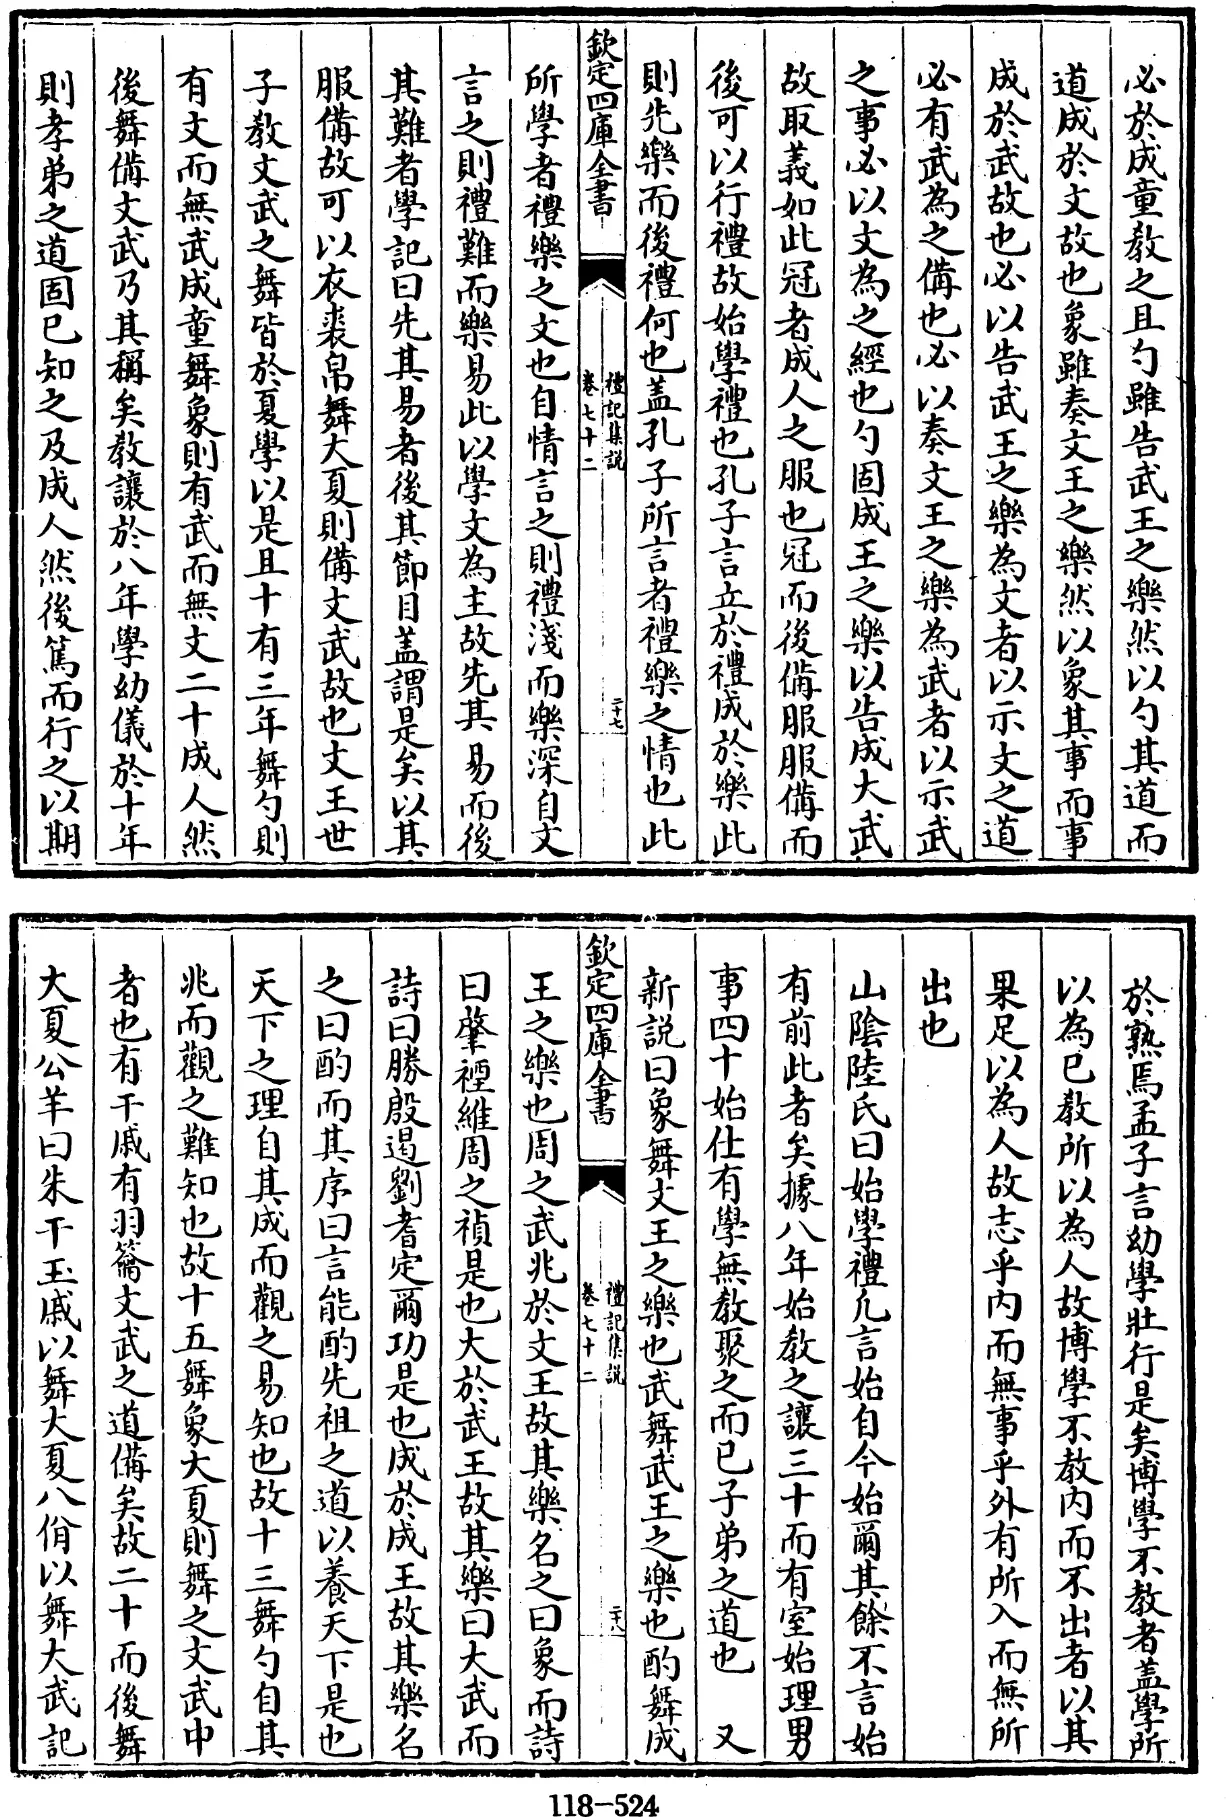 必於成童教之且勺雖告武王之樂然以勺其道而
道成於文故也象雖奏文王之樂然以象其事而事
成於武故也必以告武王之樂為文者以示文之道
必有武為之備也必以奏文王之樂為武者以示武
之事必以文為之經也勺固成王之樂以告成大武
故取義如此冠者成人之服也冠而後備服服備而
後可以行禮故始學禮也孔子言立於禮成於樂此
則先樂而後禮何也盖孔子所言者禮樂之情也此
欽定四庫全書
禮記集說
卷七十二
二十七
所學者禮樂之文也自情言之則禮淺而樂深自文
言之則禮難而樂易此以學文為主故先其易而後
其難者學記曰先其易者後其節目盖謂是矣以其
服備故可以衣裘帛舞大夏則備文武故也文王世
子教文武之舞皆於夏學以是且十有三年舞勺則
有文而無武成童舞象則有武而無文二十成人然
後舞備文武乃其稱矣教讓於八年學幼儀於十年
則孝弟之道固已知之及成人然後篤而行之以期
於熟焉孟子言幼學壯行是矣博學不教者盖學所
以為已教所以為人故博學不教内而不出者以其
果足以為人故志乎内而無事乎外有所入而無所
出也
山陰陸氏曰始學禮凡言始自今始爾其餘不言始
有前此者矣據八年始教之讓三十而有室始理男
事四十始仕有學無教聚之而已子弟之道也 又
新說曰象舞文王之樂也武舞武王之樂也酌舞成
欽定四庫全書
禮記集說
卷七十二
二十八
王之樂也周之武兆於文王故其樂名之曰象而詩
曰肇禋維周之禎是也大於武王故其樂曰大武而
詩曰勝殷遏劉耆定爾功是也成於成王故其樂名
之曰酌而其序曰言能酌先祖之道以養天下是也
天下之理自其成而觀之易知也故十三舞勺自其
兆而觀之難知也故十五舞象大夏則舞之文武中
者也有干戚有羽籥文武之道備矣故二十而後舞
大夏公羊曰朱干玉戚以舞大夏八佾以舞大武記
118-524